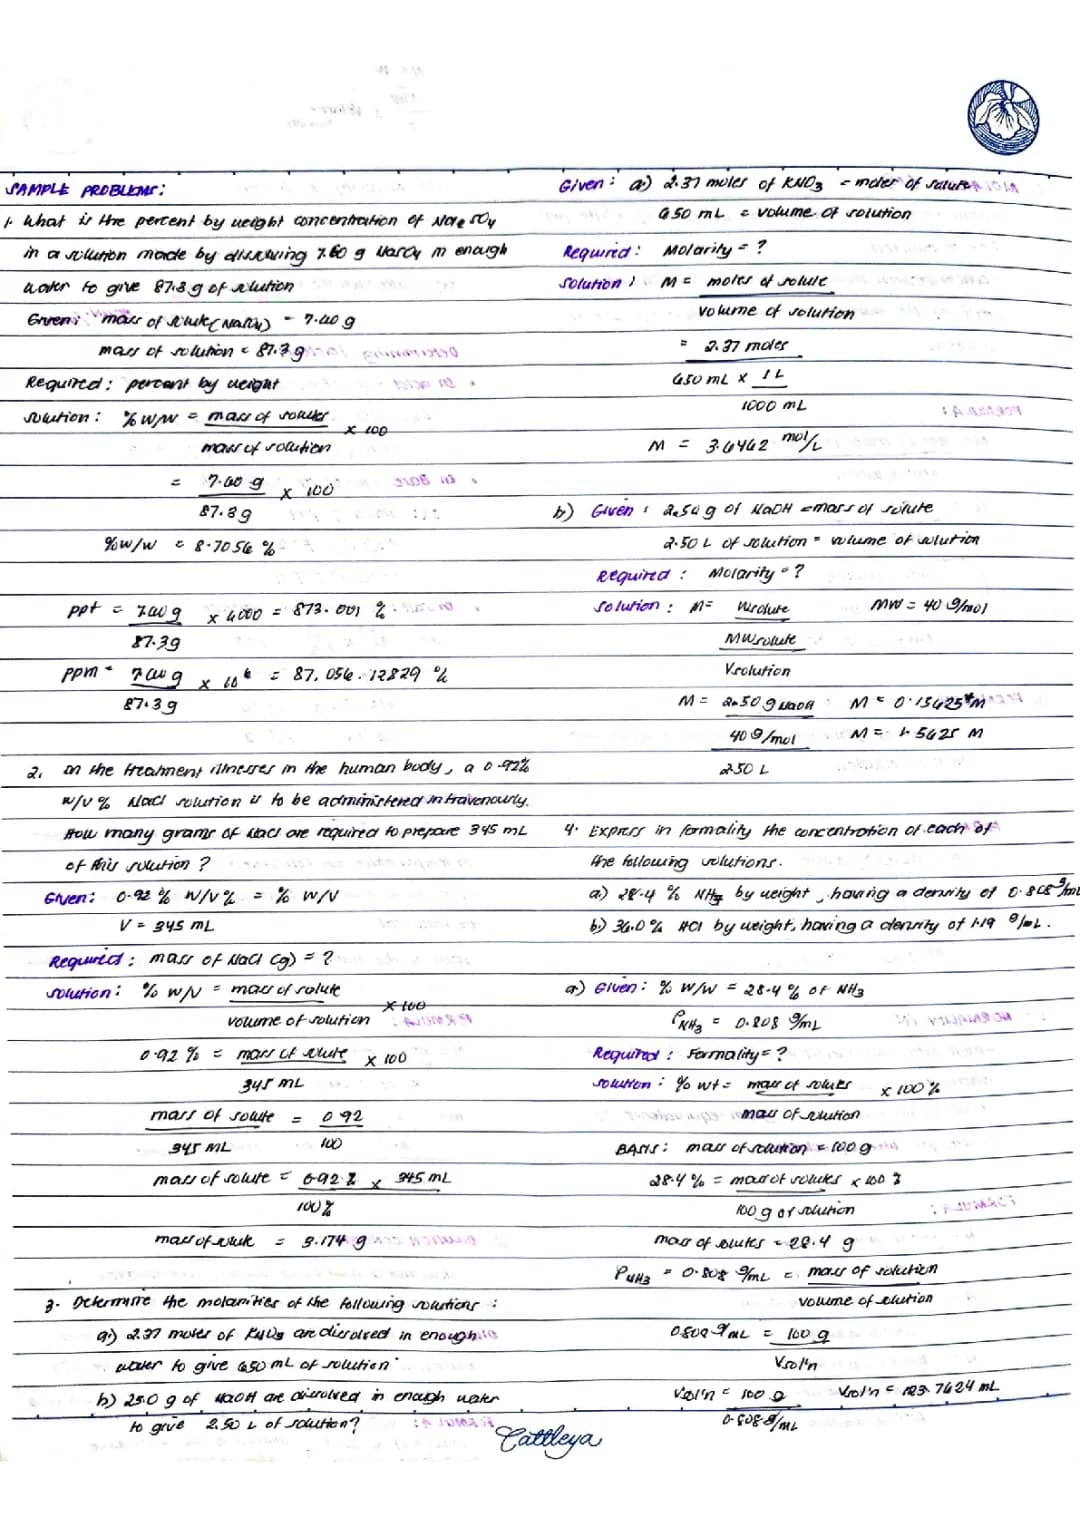 SAMPLE PROBLEMS:
1. What is the percent by weight concentration of Na2SO4
in a solution made by dissolving 7.60 g Na2SO4 in enough
water to give 87.3 g of solution
Given: mass of solute (Na2SO4) = 7.60 g
mass of solution = 87.3 g
Required: percent by weight
solution: % w/w = mass of solutes x 100
mass of solution
= 7.60 g x 100
87.3g
% w/w = 8.7056 %
ppt = 7.60 g x 1000
87.3g
ppm = 7.60 g x 10^6 = 87,056.12829 %
87.3g
2. In the treatment illnesses in the human body, a 0.92%
w/v % NaCl solution is to be administered intravenously.
How many grams of NaCl are required to prepare 345 mL
of this solution?
Given: 0.92 % w/v % = % w/v
V = 345 mL
Required: mass of NaCl (g) = ?
solution: % w/v = mass of solute x 100
volume of solution
0.92 % = mass of solute x 100
345 mL
mass of solute = 0.92
345 mL 100
mass of solute = 0.92 % x 345 mL
100%
mass of solute = 3.174 g
3. Determine the molarities of the following solutions:
a.) 2.37 moles of KNO3 are dissolved in enough
water to give 650 mL of solution
b) 25.0 g of NaOH are dissolved in enough water
to give 2.50 L of solution?
Given: a) 2.37 moles of KNO3 = moles of solute
650 mL = volume of solution
Required: Molarity = ?
solution: M = moles of solute
volume of solution
= 2.37 moles
650 mL x 1 L
1000 mL
M = 3.6462 mol/L
b) Given: g of NaOH = mass of solute
2.50 L of solution = volume of solution
Required: Molarity = ?
solution: M = Wsolute MW = 40 g/mol
MWsolute
Vsolution
M = g NaOH M = M
40 g/mol M = M
2.50 L
4. Express in formality the concentration of each of
the following solutions.
a) 28.4 % NH3 by weight, having a density of 0.808 g/mL
b.) 36.0 % HCl by weight, having a density of 1.19 g/mL.
a) Given: % w/w = 28.4 % of NH3
ρNH3 = 0.808 g/mL
Required: Formality = ?
solution: % wt = mass of solutes x 100 %
mass of solution
BASIS: mass of solution = 100 g
28.4 % = mass of solutes x 100 %
100 g of solution
mass of solutes = 28.4 g
ρNH3 = 0.808 g/mL = mass of solution
volume of solution
0.808 g/mL = 100 g
Vsol'n
Vsol'n = 100 g Vsol'n = 123.7624 mL
0.808 g/mL
Cattleya